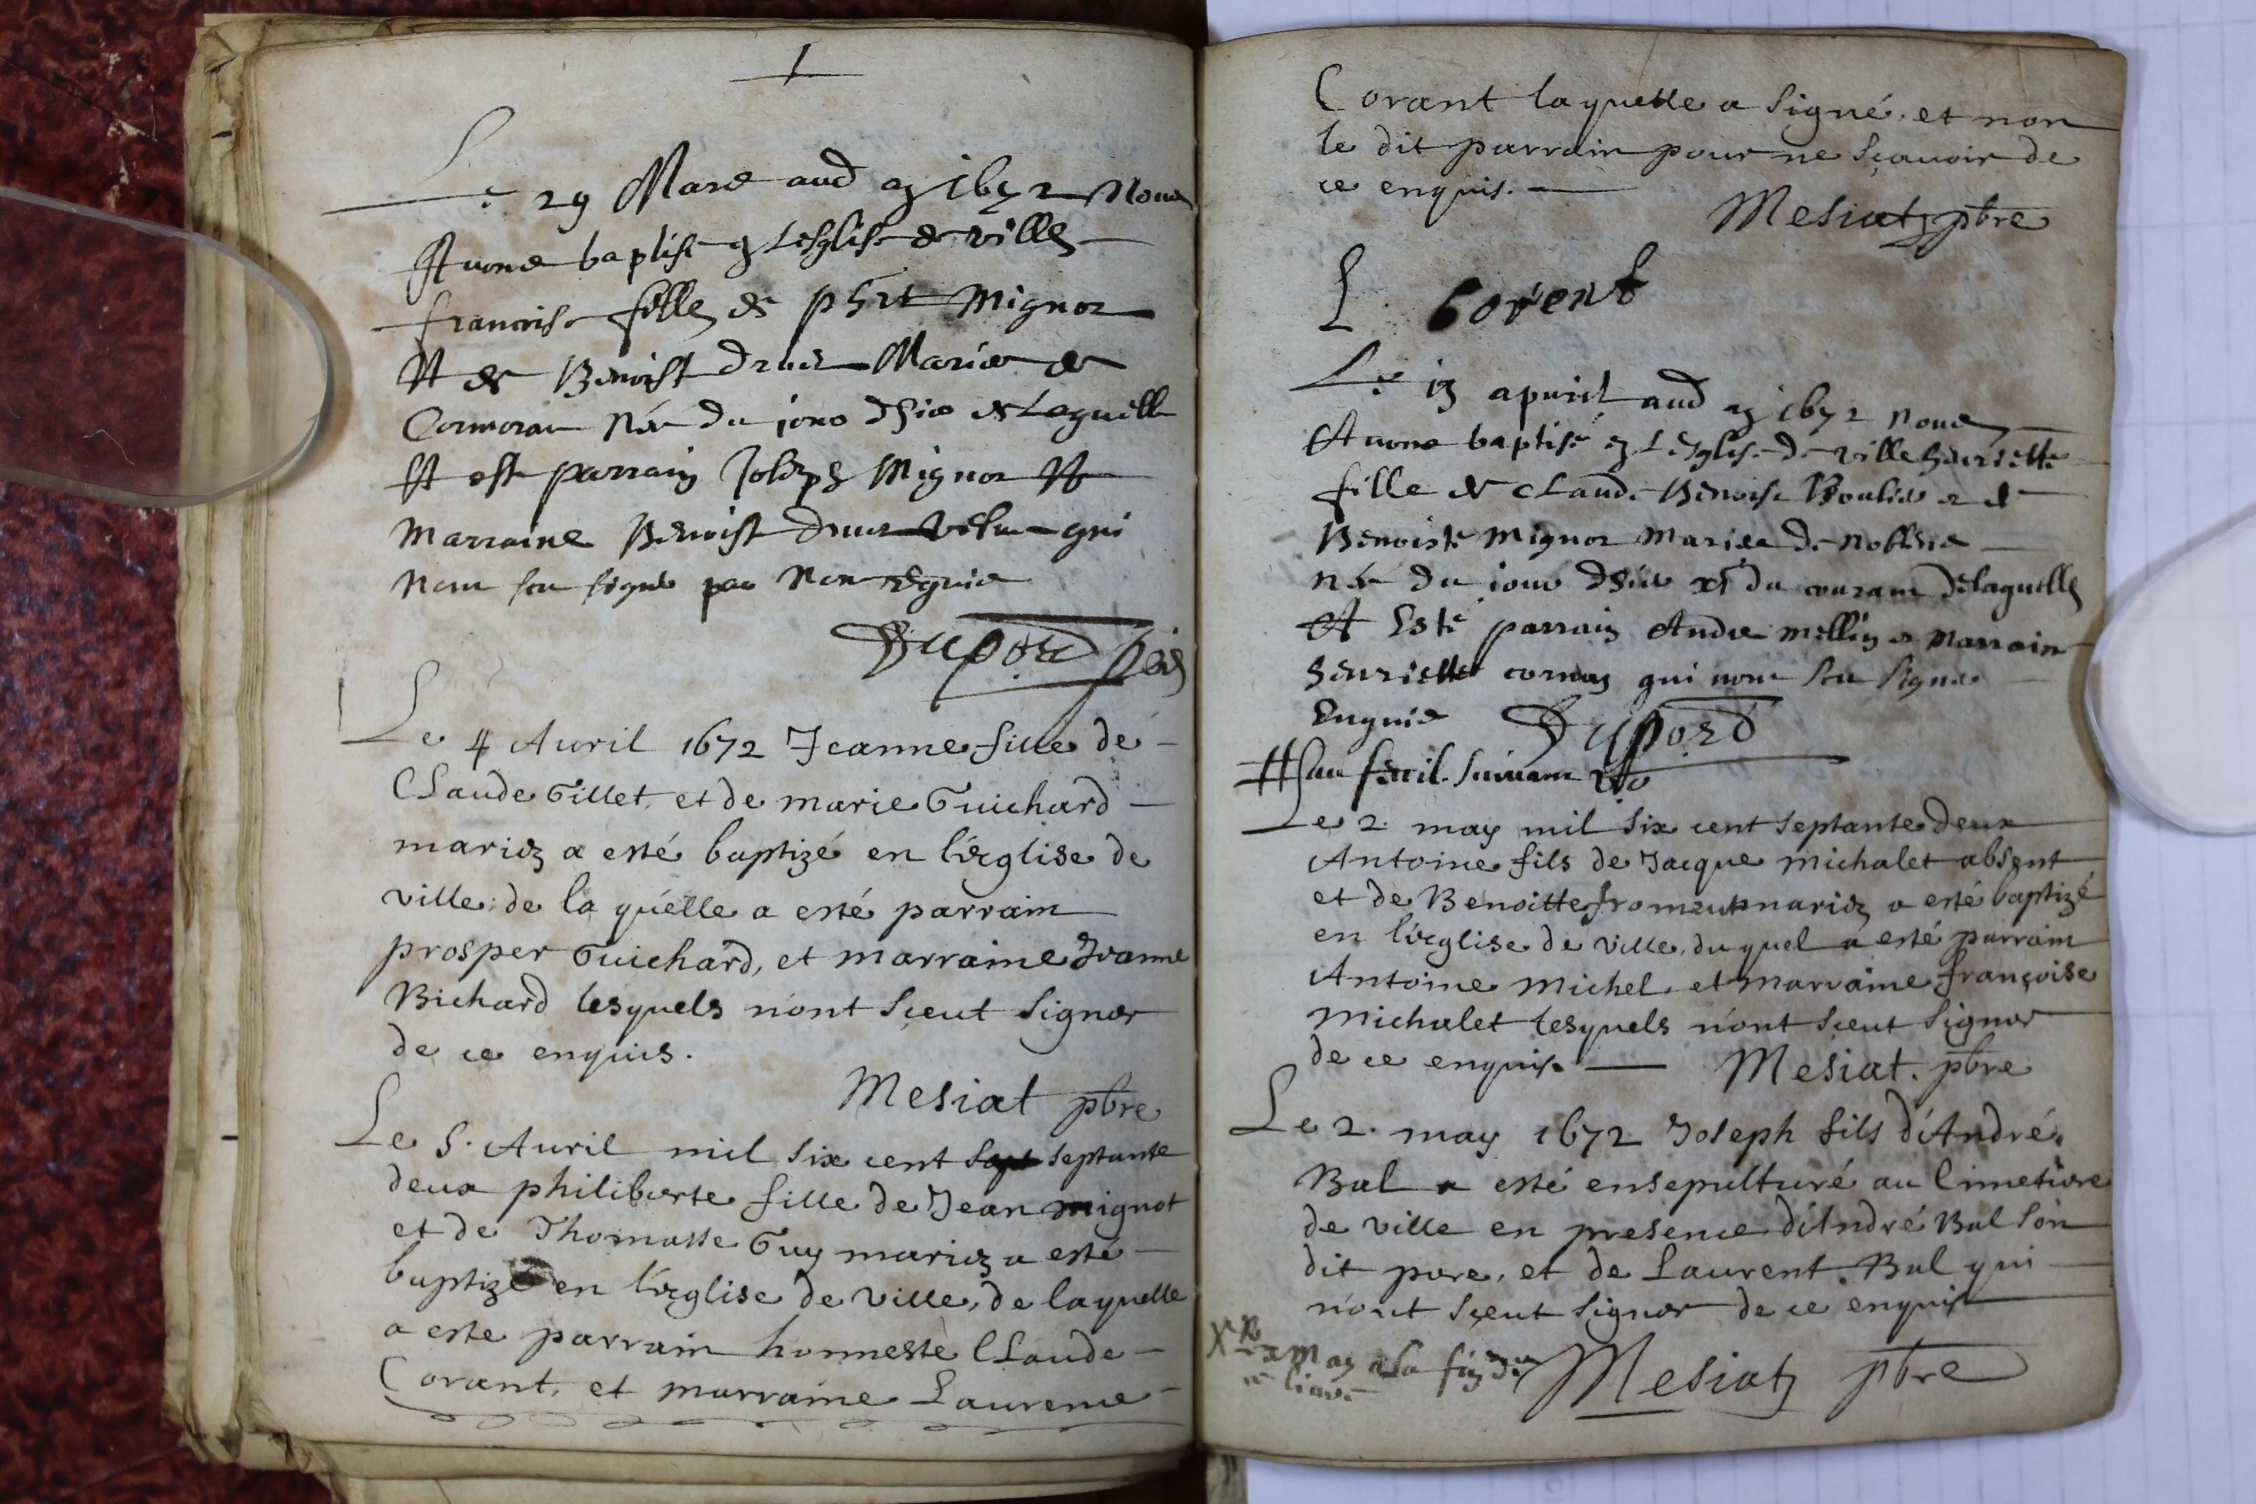 Le 29 Mars aud an 1672 Nous
Avons baptise en Lesglise de ville
francoise fille de phrt Mignot
Et de Benoist Mariés de
Cormoran Née du jour dhier de Laquelle
Et este parrain Joseph Mignot Et
Marraine Benoist qui
Nont sceu signé pas Non
Dupord
Le 4 Avril 1672 Jeanne fille de
Claude Gillet, et de marie Guichard
mariez a esté baptizé en l'éeglise de
ville; de la quélle a esté parrain
prosper Guichard, et marraine Jeanne
Bichard lesquels n'ont sçeut signer
de ce enquis.
Mesiat pbre
Le 5. Auril mil six cent septante
deux philiberte fille de Jean mignot
et de Thomasse Guy mariez a esté
baptizé en l'éeglise de ville, de laquelle
a este parrain honneste Claude
Corant, et marraine Laurence
Corant laquelle a signé, et non
le dit parrain pour ne sçauoir de
ce enquis.
Mesiat pbre
L Corent
Le apuril aud an 1672 nous
Avons baptisé en Lesglise de ville henriette
fille de Claude Benoist Boulie et de
Benoiste Mignot Mariés de
Née du jour dhier du courant de laquelle
Et Esté parrain Andre Mellin et Marraine
henriette qui nont sceu signé
Enquis Dupord
# au feuil. suivant
Le 2. may mil six cent septante deux
Antoine fils de Jacque michalet absent
et de Benoitte froment mariez a esté baptizé
en l'éeglise de ville, du quel a esté parrain
Antoine michel, et marraine françoise
michalet lesquels n'ont sceut signer
de ce enquis. Mesiat. pbre
Le 2. may 1672 Joseph fils d'André
Bal a esté ensepulturé au Cimetiere
de ville en presence d'André Bal son
dit pere, et de Laurent Bal qui
n'ont sçeut signer de ce enquis
may a la fin du
ce liure
Mesiat pbre